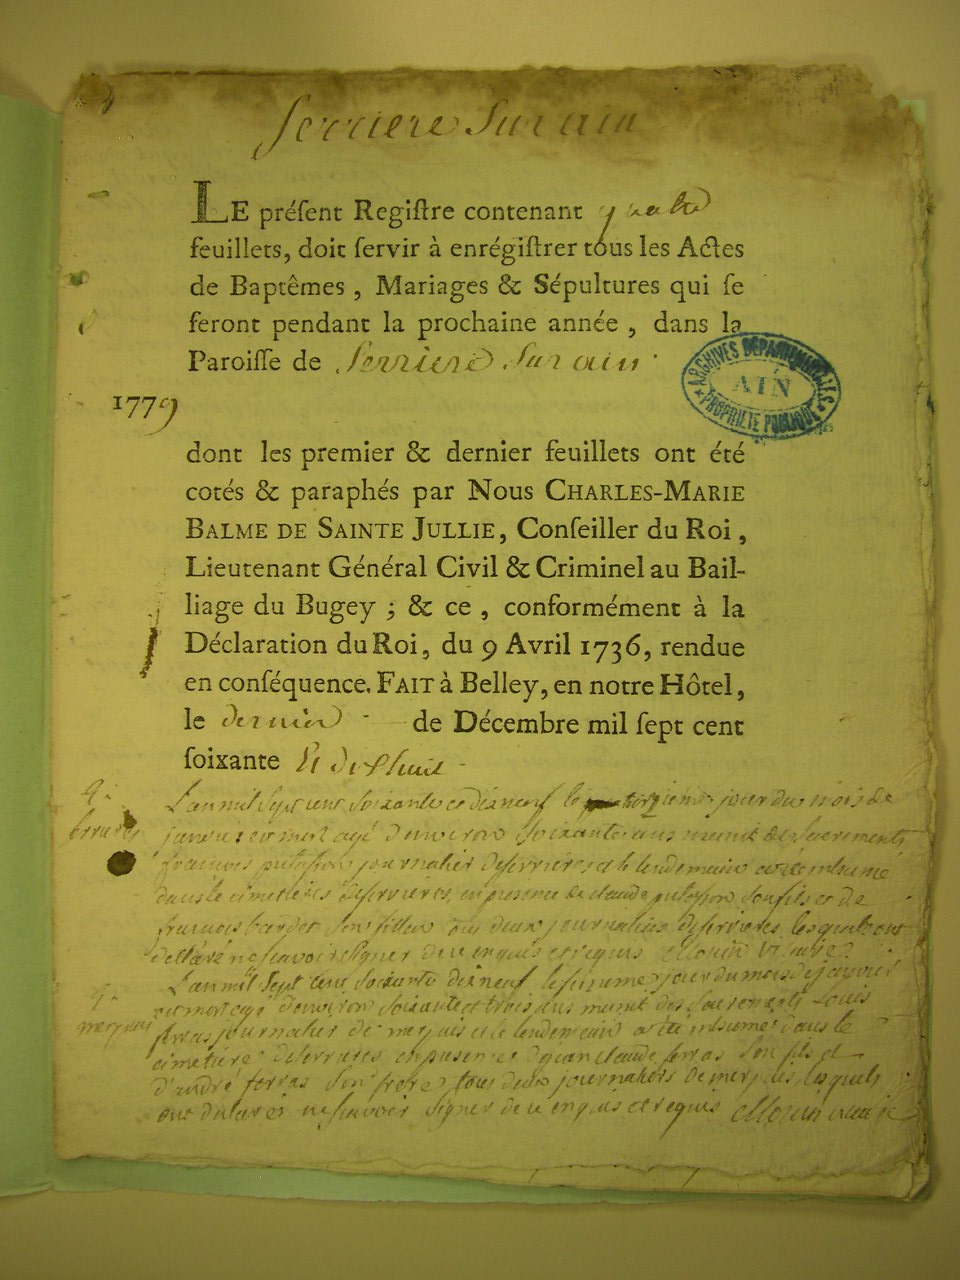 Serriere Sur ain
LE préſent Regiſtre contenant quatre
feuillets, doit ſervir à enrégiſtrer tous les Actes
de Baptêmes, Mariages & Sépultures qui ſe
feront pendant la prochaine année, dans la
Paroiſſe de Serriere Sur ain
ARCHIVES DÉPARTEMENTALES
AIN
PROPRIÉTÉ PUBLIQUE
1779
dont les premier & dernier feuillets ont été
cotés & paraphés par Nous CHARLES-MARIE
BALME DE SAINTE JULLIE, Conſeiller du Roi,
Lieutenant Général Civil & Criminel au Bail-
liage du Bugey; & ce, conformément à la
Déclaration du Roi, du 9 Avril 1736, rendue
en conſéquence. FAIT à Belley, en notre Hôtel,
le dernier de Décembre mil ſept cent
ſoixante Et dixhuit
L'an mil Sept cent Soixante et dixneuf le jour du mois de
janvier est mort agé d'environ Soixante ans munit des Sacrements
francois journalier de serrieres et le lendemain a été inhumé
dans le cimetiere de serrieres, en presence de claude Son fils et de
francois tous deux journaliers de serrieres, lesquels ont
declaré ne scavoir signer de ce enquis et requis
L'an mil Sept cent Soixante dixneuf le jour du mois de janvier
est mort agé d'environ Soixante et trois ans munit des Sacrements Louis
ferras journalier de et le lendemain a été inhumé dans le
cimetiere de serrieres en presence de jean claude ferras Son fils et
d'andré ferras Son frere tous deux journaliers de lesquels
ont declaré ne scavoir signer de ce enquis et requis